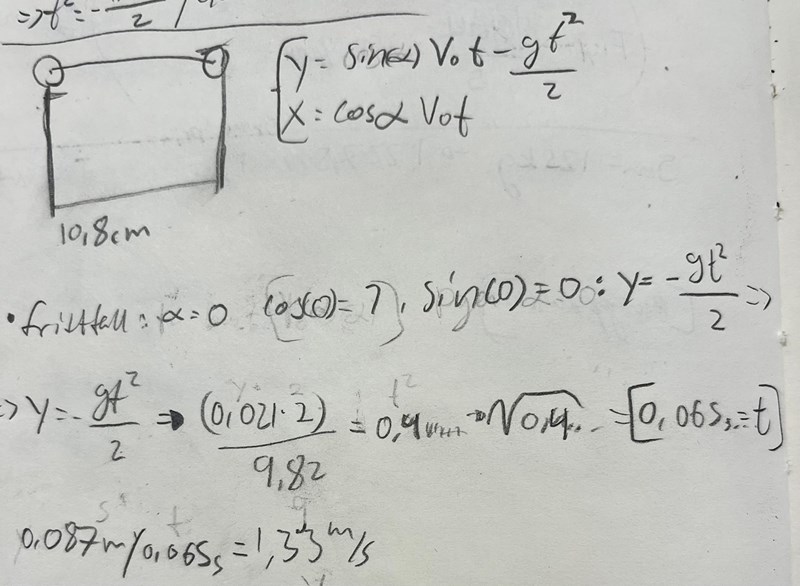 => t² = - / 2
y = sin(α) V₀ t - gt²/2
x = cosα V₀t
10,8cm
• frittfall: α = 0 cos(0) = 1, sin(0) = 0: y = -gt²/2 =>
=> y = -gt²/2 => (0,021·2)/9,82 = 0,4... → √0,4... = [0,065s = t]
0,087m/0,065s = 1,33 m/s